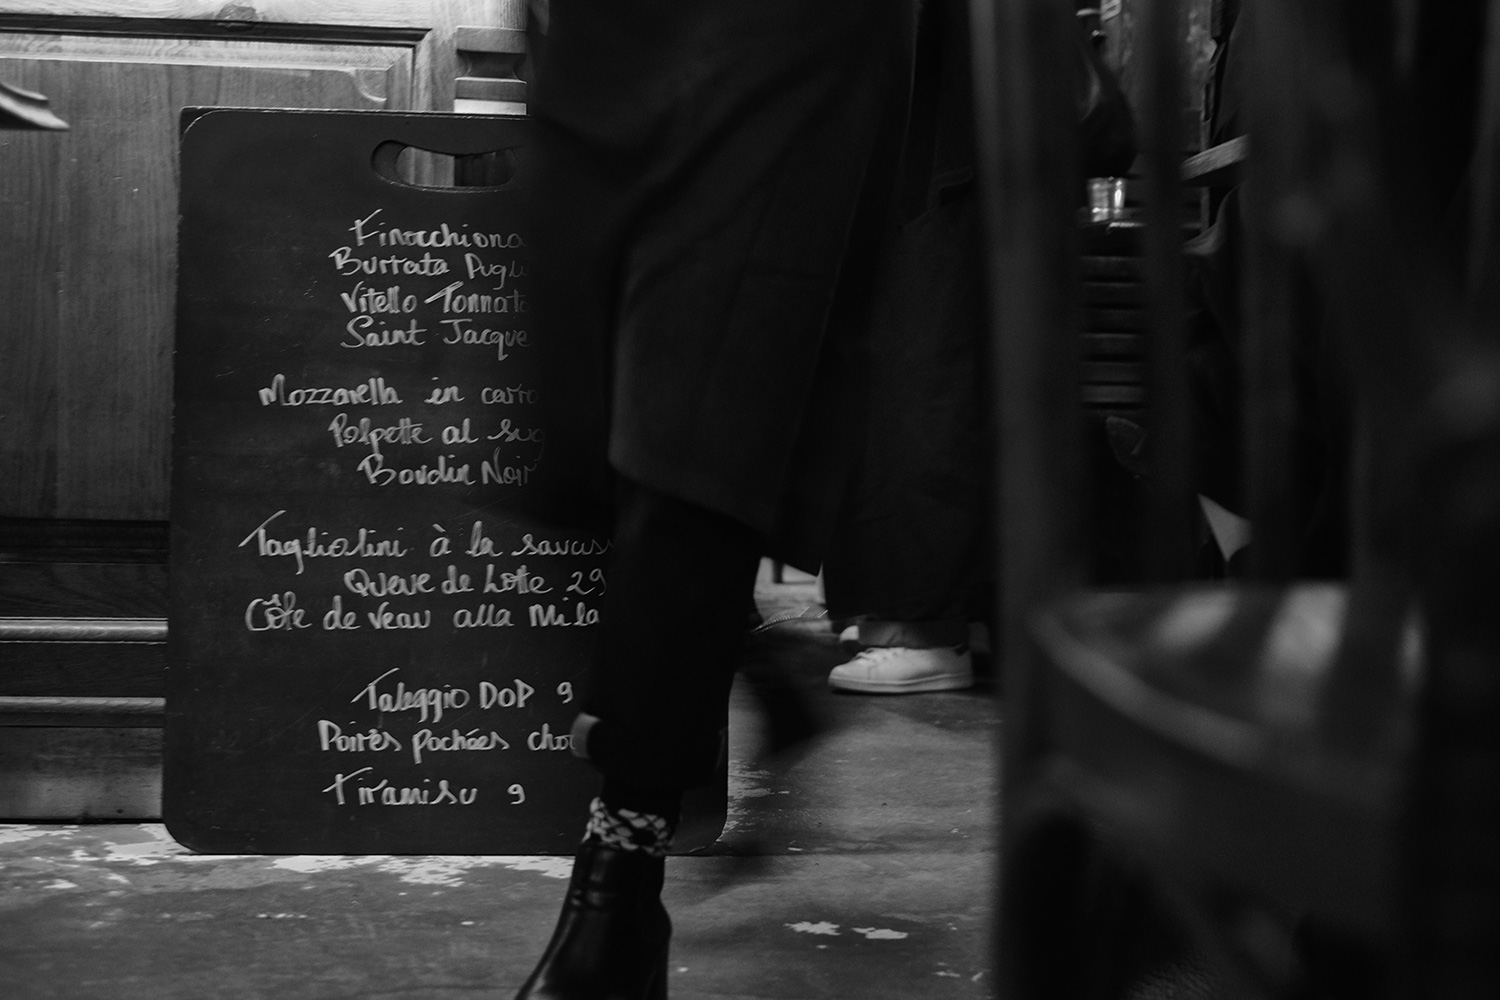 Finocchiona
Burrata Pugl
Vitello Tonnato
Saint Jacque
Mozzarella in carro
Polpette al sug
Boudin Noir
Tagliolini à la saucis
Queue de Lotte 29
Côte de Veau alla Mila
Taleggio DOP 9
Poires pochées choc
Tiramisu 9